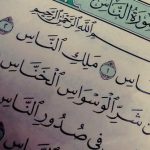 سُورَةُ النَّاسِ
بِسْمِ ٱللَّهِ ٱلرَّحْمَٰنِ ٱلرَّحِيمِ
ـاسِ ١ مَلِكِ ٱلنَّاسِ
شَرِّ ٱلْوَسْوَاسِ ٱلْخَنَّاسِ
فِى صُدُورِ ٱلنَّاسِ